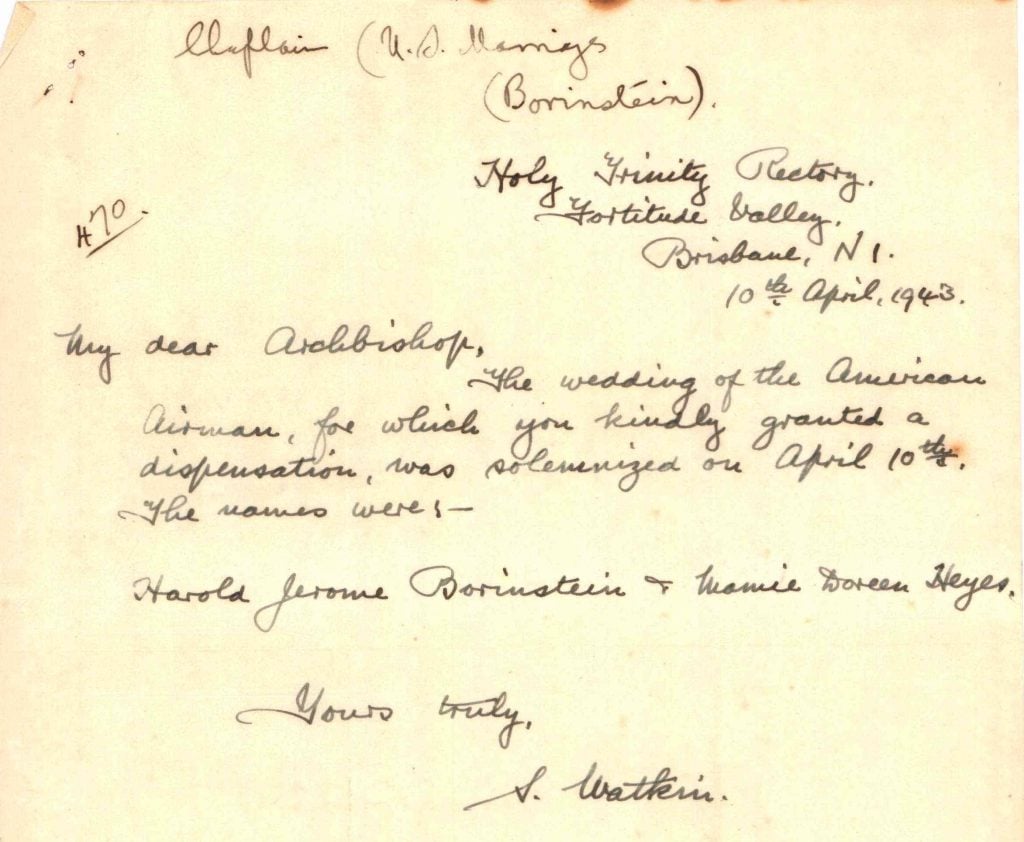 Chaplain (U.S. Marriages
(Borinstein).
Holy Trinity Rectory.
Fortitude Valley.
Brisbane, N1.
470.
10th April, 1943.
My dear Archbishop,
The wedding of the American
Airman, for which you kindly granted a
dispensation, was solemnized on April 10th.
The names were:—
Harold Jerome Borinstein & Mamie Doreen Heyes.
Yours truly,
S. Watkin.